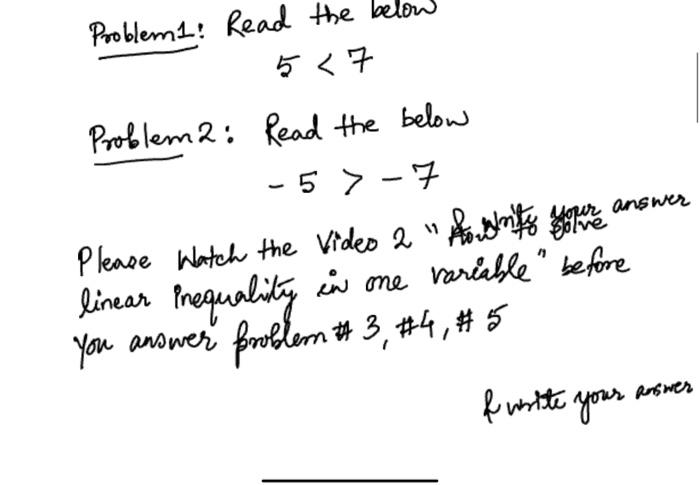 Problem1: Read the below
5 < 7
Problem 2: Read the below
- 5 > - 7
& write your answer
Please Watch the Video 2 " How to solve
linear inequality in one variable" before
you answer problem # 3, #4, # 5
& write your answer